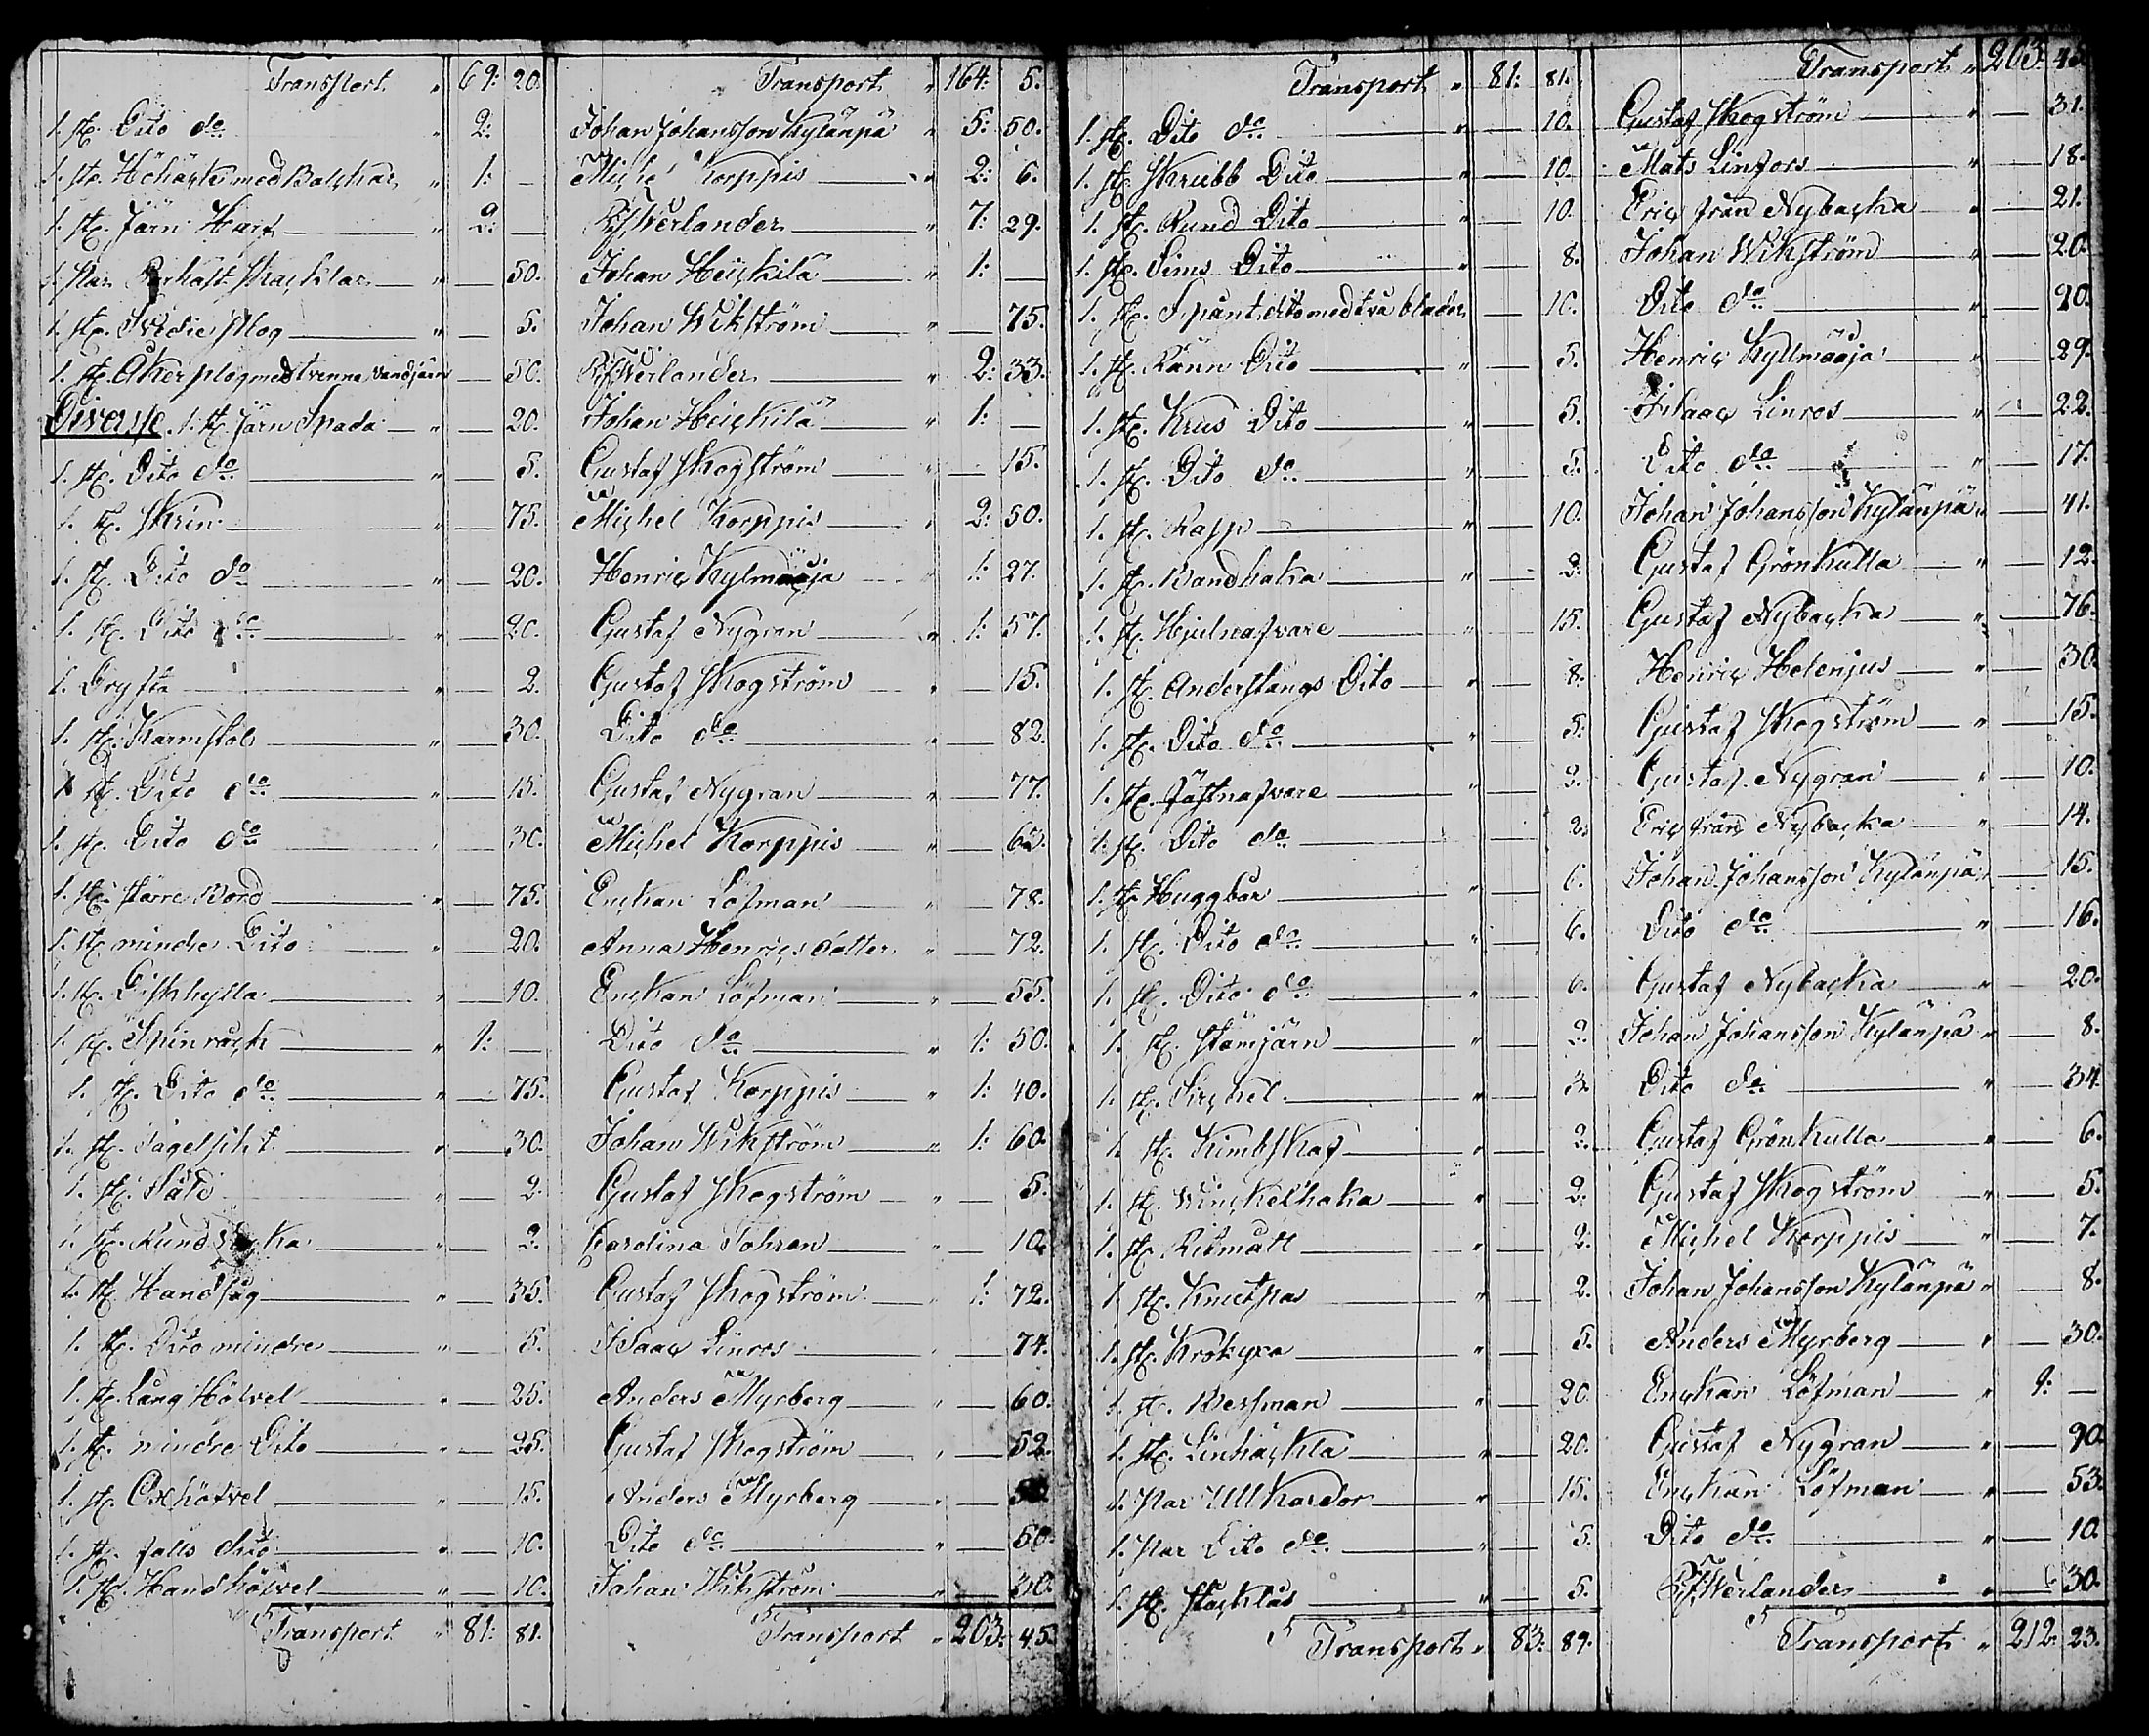 Transport " 69: 20. Transport " 164: 5.
1. st. Dito do " 2: Johan Johansson Kylänpä " 5: 50.
1. st. Höhäck med Balckar " 1: — Michel Korppis " 2: 6.
1. st. Järn Harf " 2: — Werlander " 7: 29.
1. Par Skacklar " — 50. Johan Heickilä " 1: —
1. st. Svedie plog " — 5. Johan Wikström " — 75.
1. st. Åkerplog med tvenne vändjärn — 50. Werlander " 2: 33.
Diverse. 1. st. järn Spada " — 20. Johan Heickilä " 1: —
1. st. Dito do " — 5. Gustaf Skogström " — 15.
1. st. Skrin " — 75. Michel Korppis " 2: 50.
1. st. Dito do " — 20. Henric Kylmääja " 1: 27.
1. st. Dito do " — 20. Gustaf Nygran " 1: 57.
1. Dryfta " — 2. Gustaf Skogström " — 15.
1. st. Karmstol " — 30. Dito do " — 82.
1. st. Dito do " — 15. Gustaf Nygran " — 77.
1. st. Dito do " — 30. Michel Korppis " — 65.
1. st. större Bord " — 75. Enckan Löfman " — 78.
1. st. mindre Dito " — 20. Anna Henricsdotter " — 72.
1. st. Diskhylla " — 10. Enckan Löfman " — 55.
1. st. Spinråck " 1: — Dito do " 1: 50.
1. st. Dito do " — 75. Gustaf Korppis " 1: 40.
1. st. Tagelsikt " — 30. Johan Wikström " 1: 60.
1. st. Såld " — 2. Gustaf Skogström " — 5.
1. st. " — 2. Karolina Tohran " — 10.
1. st. Handsåg " — 35. Gustaf Skogström " 1: 72.
1. st. Dito mindre " — 5. Isaac Linros " — 74.
1. st. Lång Höfvel " — 25. Anders Myrberg " — 60.
1. st. mindre Dito " — 25. Gustaf Skogström " — 52.
1. st. Oxhöfvel " — 15. Anders Myrberg " —
1. st. falls dito " — 10. Dito do " — 50.
1. st. Handhöfvel " — 10. Johan Wikström " — 30.
Transport " 81: 81. Transport " 203: 45.
Transport " 81: 81. Transport " 203: 45.
1. st. Dito do " — 10. Gustaf Skogström " — 31.
1. st. Skrubb Dito " — 10. Mats Linfors " — 18.
1. st. Rund Dito " — 10. Eric från Nybacka " — 21.
1. st. Sims Dito " — 8. Johan Wikström " — 20.
1. st. Spånt dito med två blader — 10. Dito do " — 20.
1. st. Ränn Dito " — 5. Henric Kyllmääja " — 29.
1. st. Krus Dito " — 5. Isaac Linros " — 22.
1. st. Dito do " — 5. Dito do " — 17.
1. st. Rasp " — 10. Johan Johansson Kylänpä " — 41.
1. st. Bandhaka " — 2. Gustaf Grönkulla " — 12.
1. st. Hjulnafvare " — 15. Gustaf Nybacka " — 76.
1. st. Anderstangs Dito " — 8. Henric Helenjus " — 30.
1. st. Dito do " — 5. Gustaf Skogström " — 15.
1. st. fästnafvare " — 2. Gustaf Nygran " — 10.
1. st. Dito do — 2. Eric från Nybacka " — 14.
1. st. Huggbår " — 6. Johan Johansson Kylänpä " — 15.
1. st. Dito do " — 6. Dito do " — 16.
1. st. Dito do " — 6. Gustaf Nybacka " — 20.
1. st. Stämjärn " — 2. Johan Johansson Kylänpä " — 8.
1. st. Sirckel " — 3. Dito do " — 34.
1. st. Kimbskaf " — 2. Gustaf Grönkulla " — 6.
1. st. Winckelhaka " — 2. Gustaf Skogström " — 5.
1. st. Ritmått " — 2. Michel Korppis " — 7.
1. st. Knutpas " — 2. Johan Johansson Kylänpä " — 8.
1. st. Krokyxa " — 5. Anders Myrberg " — 30.
1. st. Bessman " — 20. Enckan Löfman " 2: —
1. st. Linhäckla " — 20. Gustaf Nygran " — 90.
1. Par Ullkardor " — 15. Enckan Löfman " — 53.
1. Par Dito do " — 5. Dito do " — 10.
1. st. Stocklås " — 5. Werlander " — 30.
Transport " 83: 89. Transport " 212: 23.